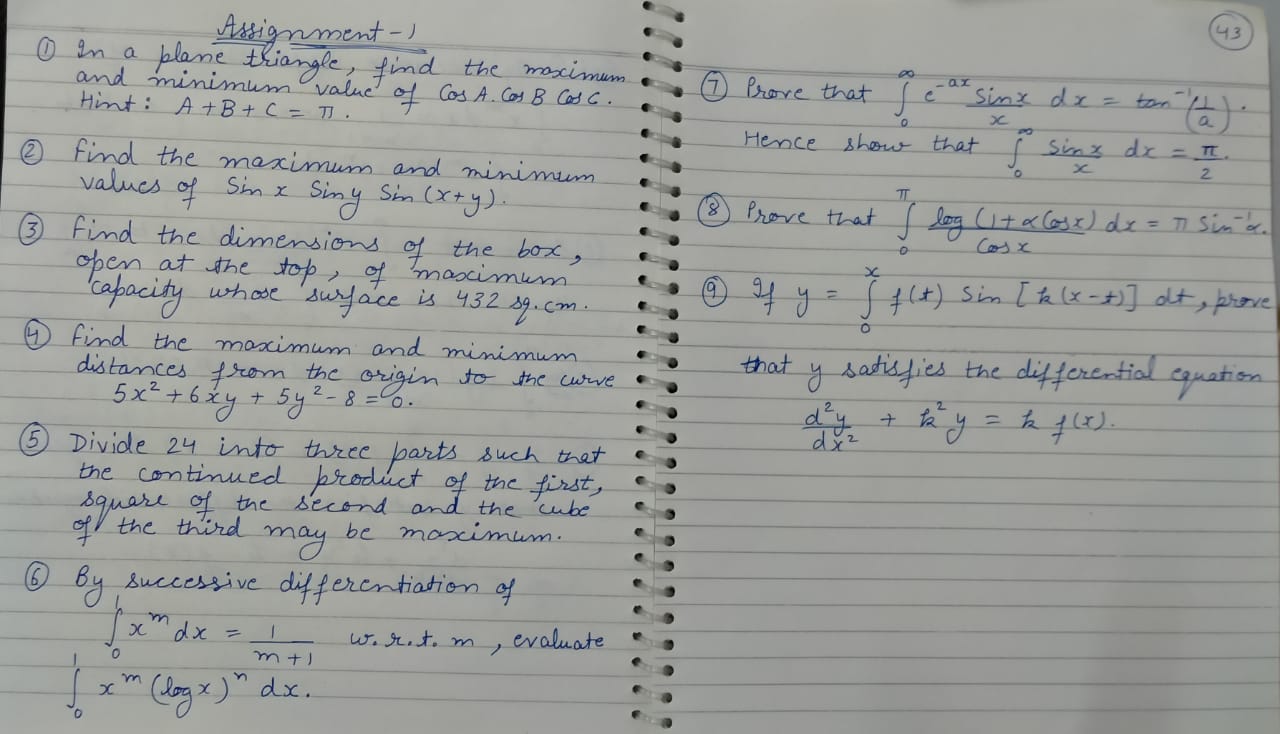 Assignment-1
① In a plane triangle, find the maximum
and minimum value of Cos A. Cos B Cos C.
Hint: A+B+C = π.
② Find the maximum and minimum
values of Sin x Siny Sin (x+y).
③ Find the dimensions of the box,
open at the top, of maximum
capacity whose surface is 432 sq.cm.
④ Find the maximum and minimum
distances from the origin to the curve
5x² + 6xy + 5y² - 8 = 0.
⑤ Divide 24 into three parts such that
the continued product of the first,
square of the second and the cube
of the third may be maximum.
⑥ By successive differentiation of
∫₀¹ xᵐ dx = 1/(m+1) w.r.t. m, evaluate
∫₀¹ xᵐ (log x)ⁿ dx.
43
⑦ Prove that ∫₀^∞ e^(-ax) sin x / x dx = tan⁻¹(1/a).
Hence show that ∫₀^∞ sin x / x dx = π/2.
⑧ Prove that ∫₀^π log (1+α Cos x) / Cos x dx = π Sin⁻¹α.
⑨ If y = ∫₀^x f(t) Sin [k(x-t)] dt, prove
that y satisfies the differential equation
d²y/dx² + k²y = k f(x).